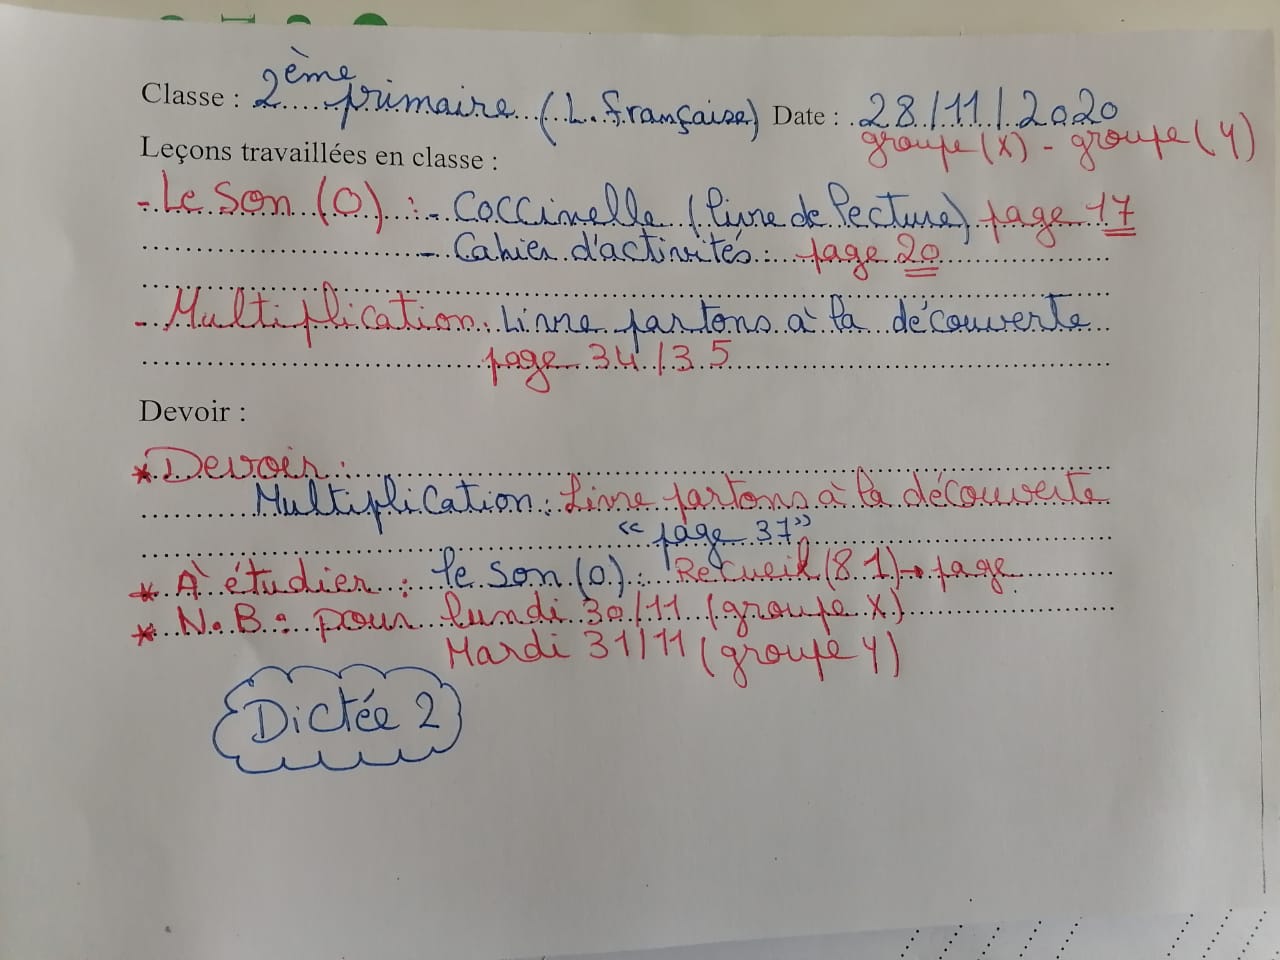 Classe : 2ème primaire (L. française) Date : 28/11/2020
groupe (X) - groupe (Y)
Leçons travaillées en classe :
- Le Son (O) : - Coccinelle (livre de lecture) page 17
- Cahier d'activités : page 20
- Multiplication : Livre partons à la découverte
page 34/35
Devoir :
* Devoir :
Multiplication : Livre partons à la découverte
« page 37 »
* À étudier : le Son (o) : Recueil (8.1) → page
* N.B : pour lundi 30/11 (groupe X)
Mardi 31/11 (groupe Y)
Dictée 2